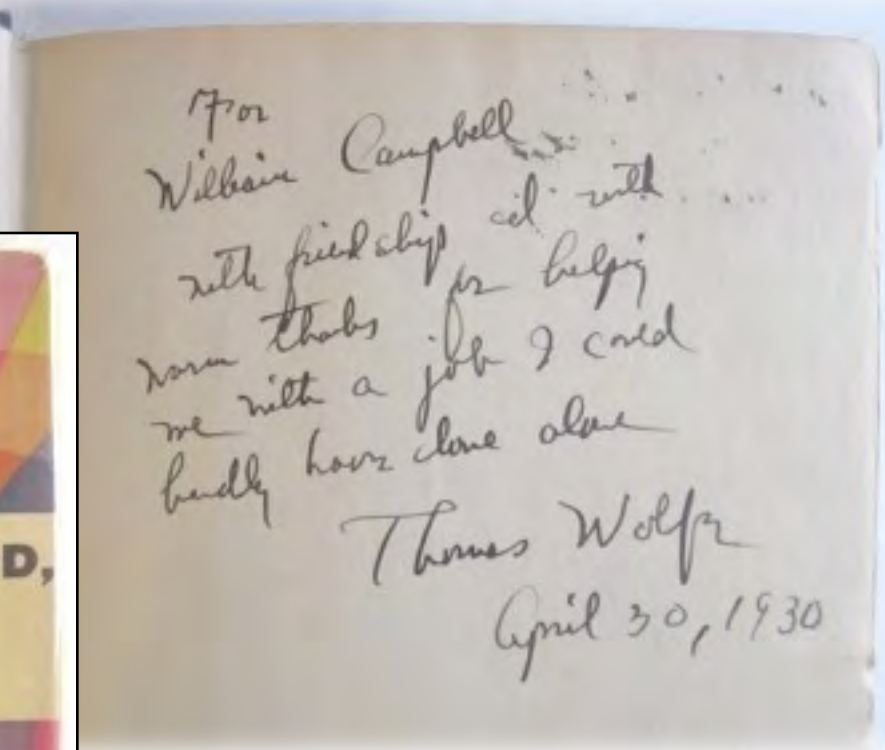 For
William Campbell
with friendship and with
warm thanks for helping
me with a job I could
hardly have done alone
Thomas Wolfe
April 30, 1930
D,